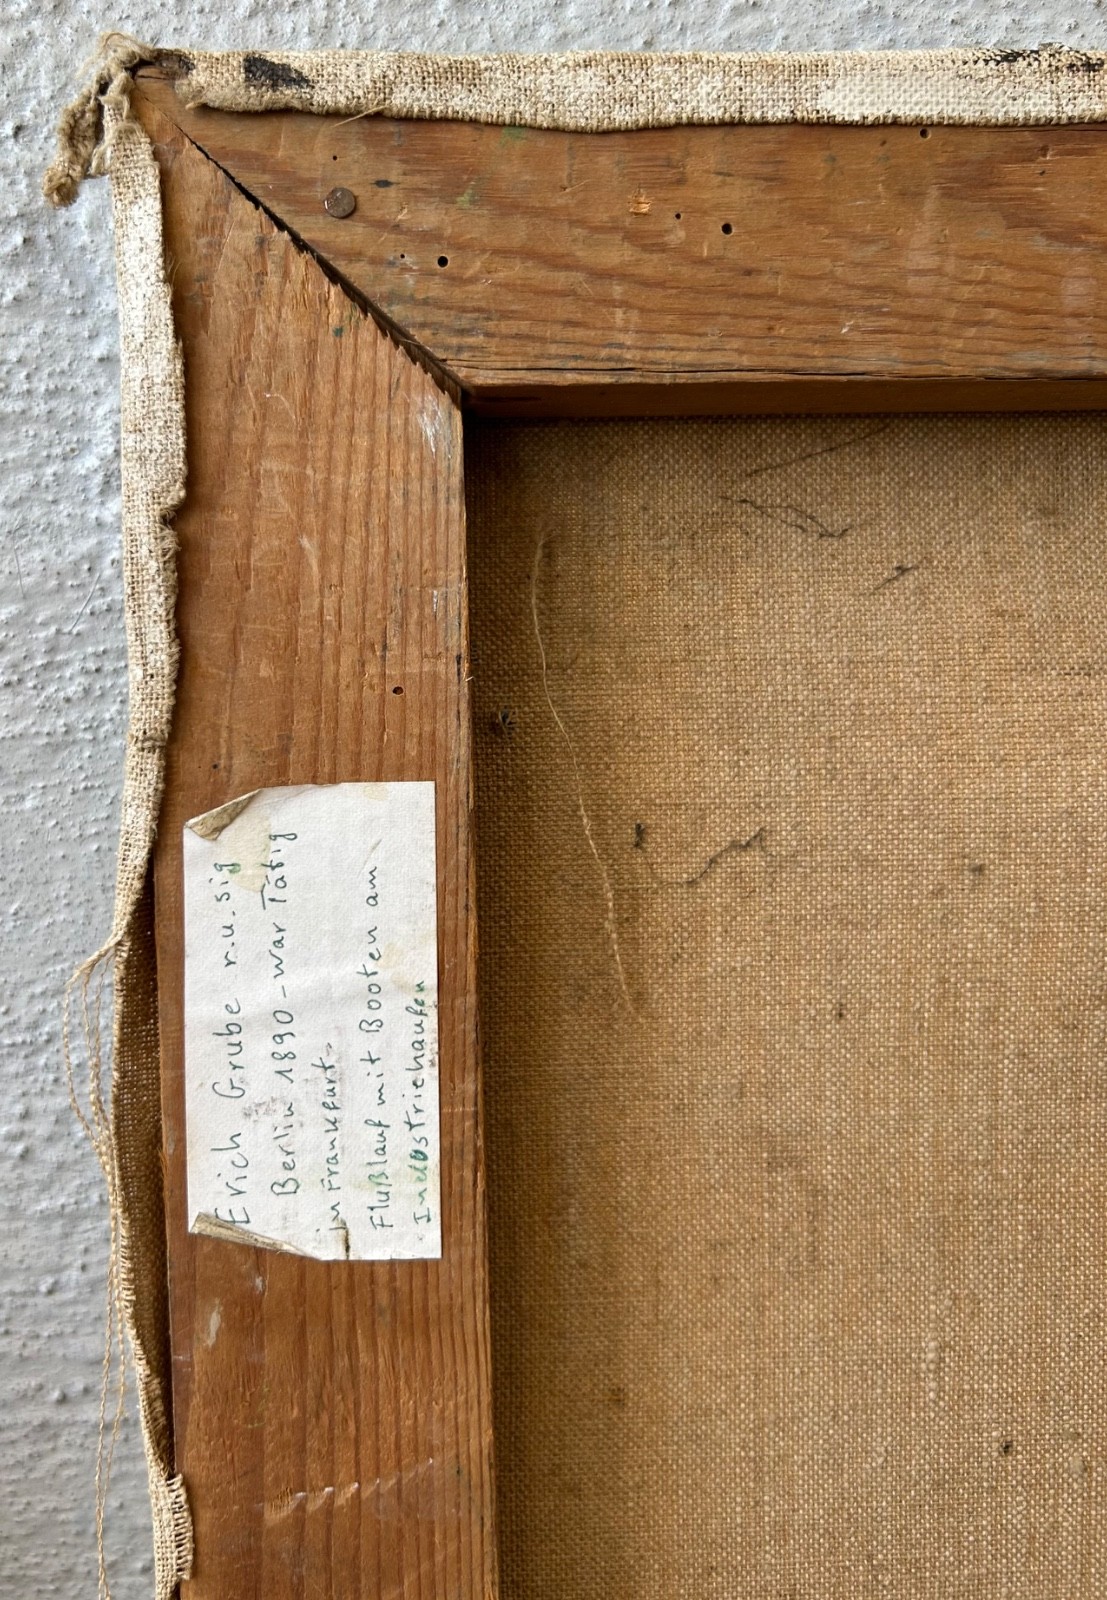 Erich Grube r.u.sig
Berlin 1890 - war Tätig
in Frankfurt-
Flußlauf mit Booten am
Industriehaufen